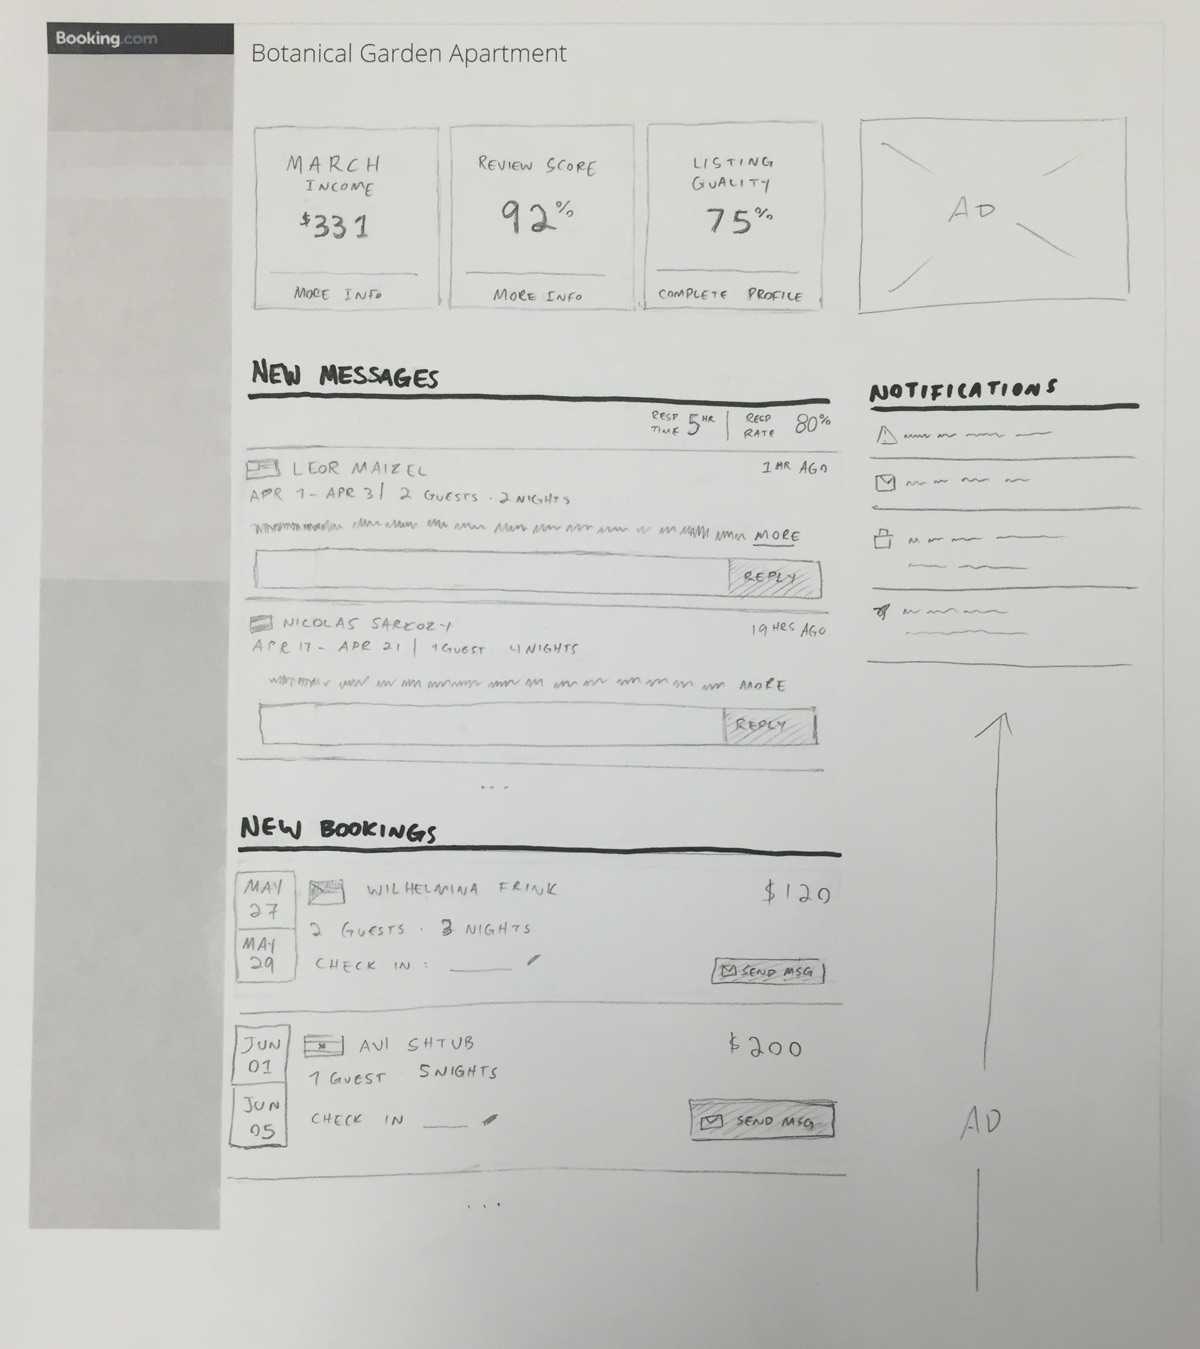 Booking.com
Botanical Garden Apartment
MARCH
INCOME
$331
MORE INFO
REVIEW SCORE
92%
MORE INFO
LISTING
QUALITY
75%
COMPLETE PROFILE
AD
NEW MESSAGES
RESP TIME 5 HR | RESP RATE 80%
LEOR MAIZEL 1 HR AGO
APR 1 - APR 3 | 2 GUESTS · 2 NIGHTS
MORE
REPLY
NICOLAS SARKOZY 19 HRS AGO
APR 17 - APR 21 | 1 GUEST · 4 NIGHTS
MORE
REPLY
...
NOTIFICATIONS
NEW BOOKINGS
MAY
27
MAY
29
WILHELMINA FRINK $120
2 GUESTS · 3 NIGHTS
CHECK IN : ____
SEND MSG
JUN
01
JUN
05
AVI SHTUB $200
1 GUEST 5 NIGHTS
CHECK IN ____
SEND MSG
...
AD